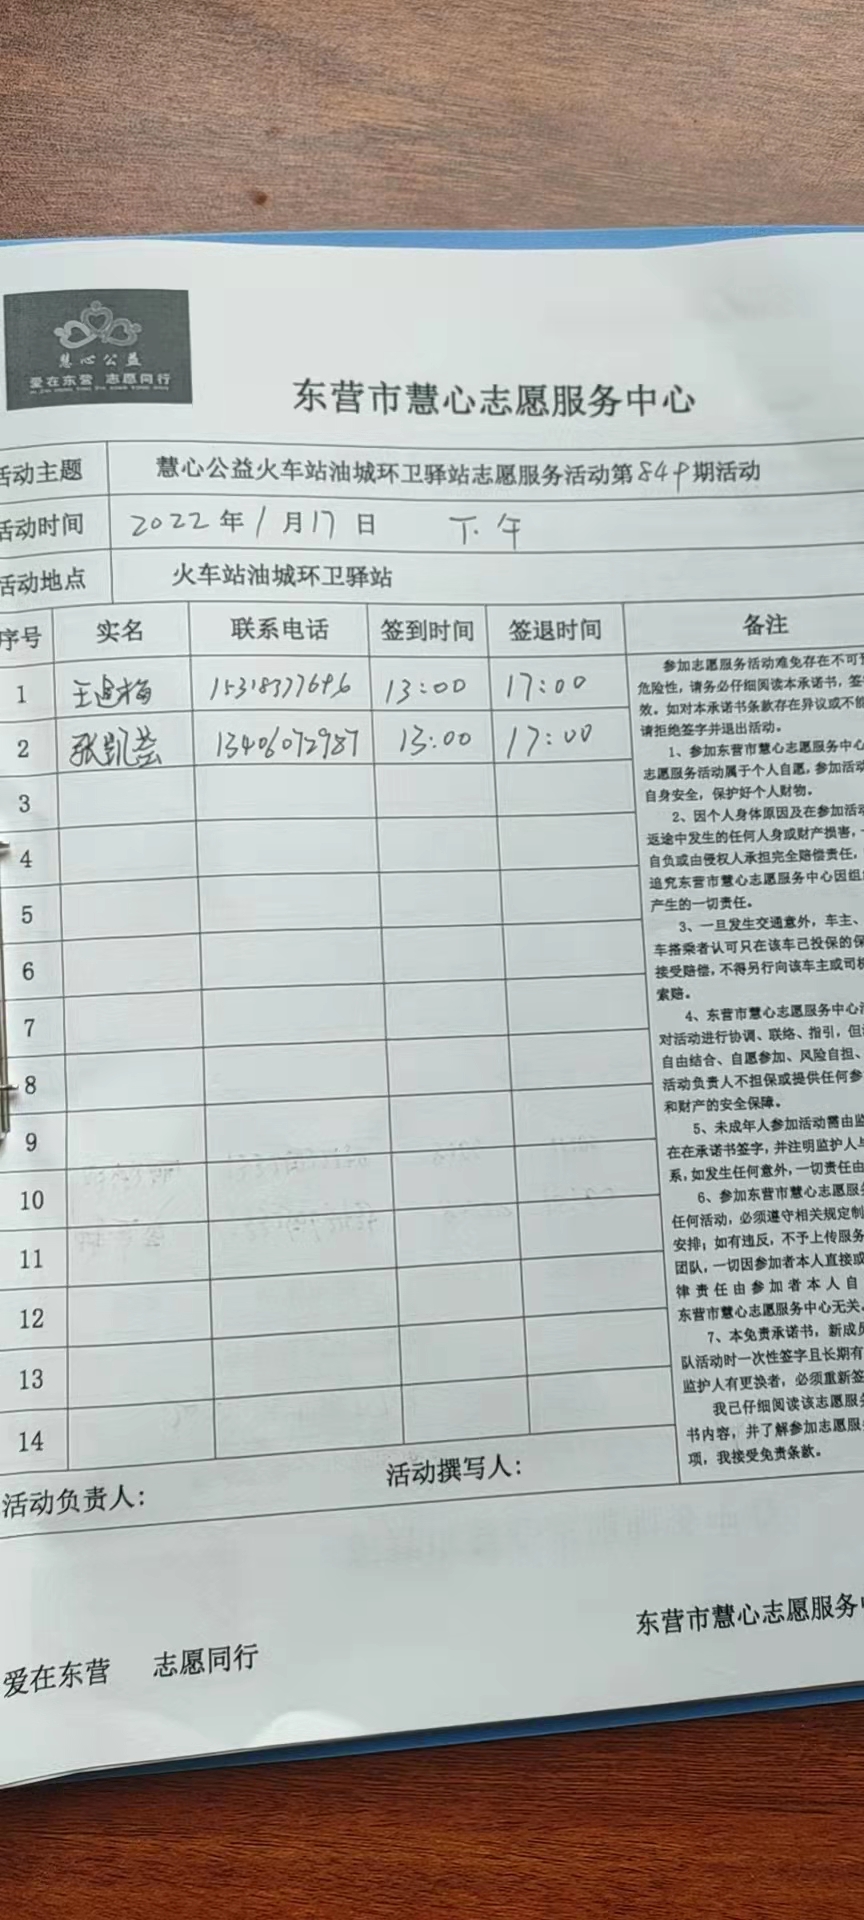 慧心公益
爱在东营 志愿同行
东营市慧心志愿服务中心
活动主题 慧心公益火车站油城环卫驿站志愿服务活动第849期活动
活动时间 2022年1月17日 下午
活动地点 火车站油城环卫驿站
序号 实名 联系电话 签到时间 签退时间 备注
1 王建梅 15318377696 13:00 17:00
2 张凯芸 13406072987 13:00 17:00
3
4
5
6
7
8
9
10
11
12
13
14
参加志愿服务活动难免存在不可预
危险性，请务必仔细阅读本承诺书，签
效。如对本承诺书条款存在异议或不能
请拒绝签字并退出活动。
1、参加东营市慧心志愿服务中心
志愿服务活动属于个人自愿，参加活动
自身安全，保护好个人财物。
2、因个人身体原因及在参加活动
返途中发生的任何人身或财产损害，
自负或由侵权人承担完全赔偿责任，
追究东营市慧心志愿服务中心因组
产生的一切责任。
3、一旦发生交通意外，车主、
车搭乘者认可只在该车已投保的保
接受赔偿，不得另行向该车主或司机
索赔。
4、东营市慧心志愿服务中心
对活动进行协调、联络、指引，但
自由结合、自愿参加、风险自担、
活动负责人不担保或提供任何参
和财产的安全保障。
5、未成年人参加活动需由监
在在承诺书签字，并注明监护人与
系，如发生任何意外，一切责任由
6、参加东营市慧心志愿服务
任何活动，必须遵守相关规定制
安排；如有违反，不予上传服务
团队，一切因参加者本人直接或
律责任由参加者本人自
东营市慧心志愿服务中心无关。
7、本免责承诺书，新成员
队活动时一次性签字且长期有
监护人有更换者，必须重新签
我已仔细阅读该志愿服务
书内容，并了解参加志愿服务
项，我接受免责条款。
活动负责人： 活动撰写人：
东营市慧心志愿服务中
爱在东营 志愿同行